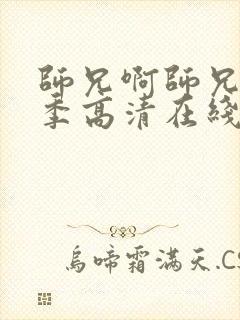 師兄啊師兄
季高清在綫
烏啼霜滿天.CS